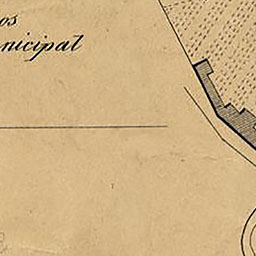 os
nicipal